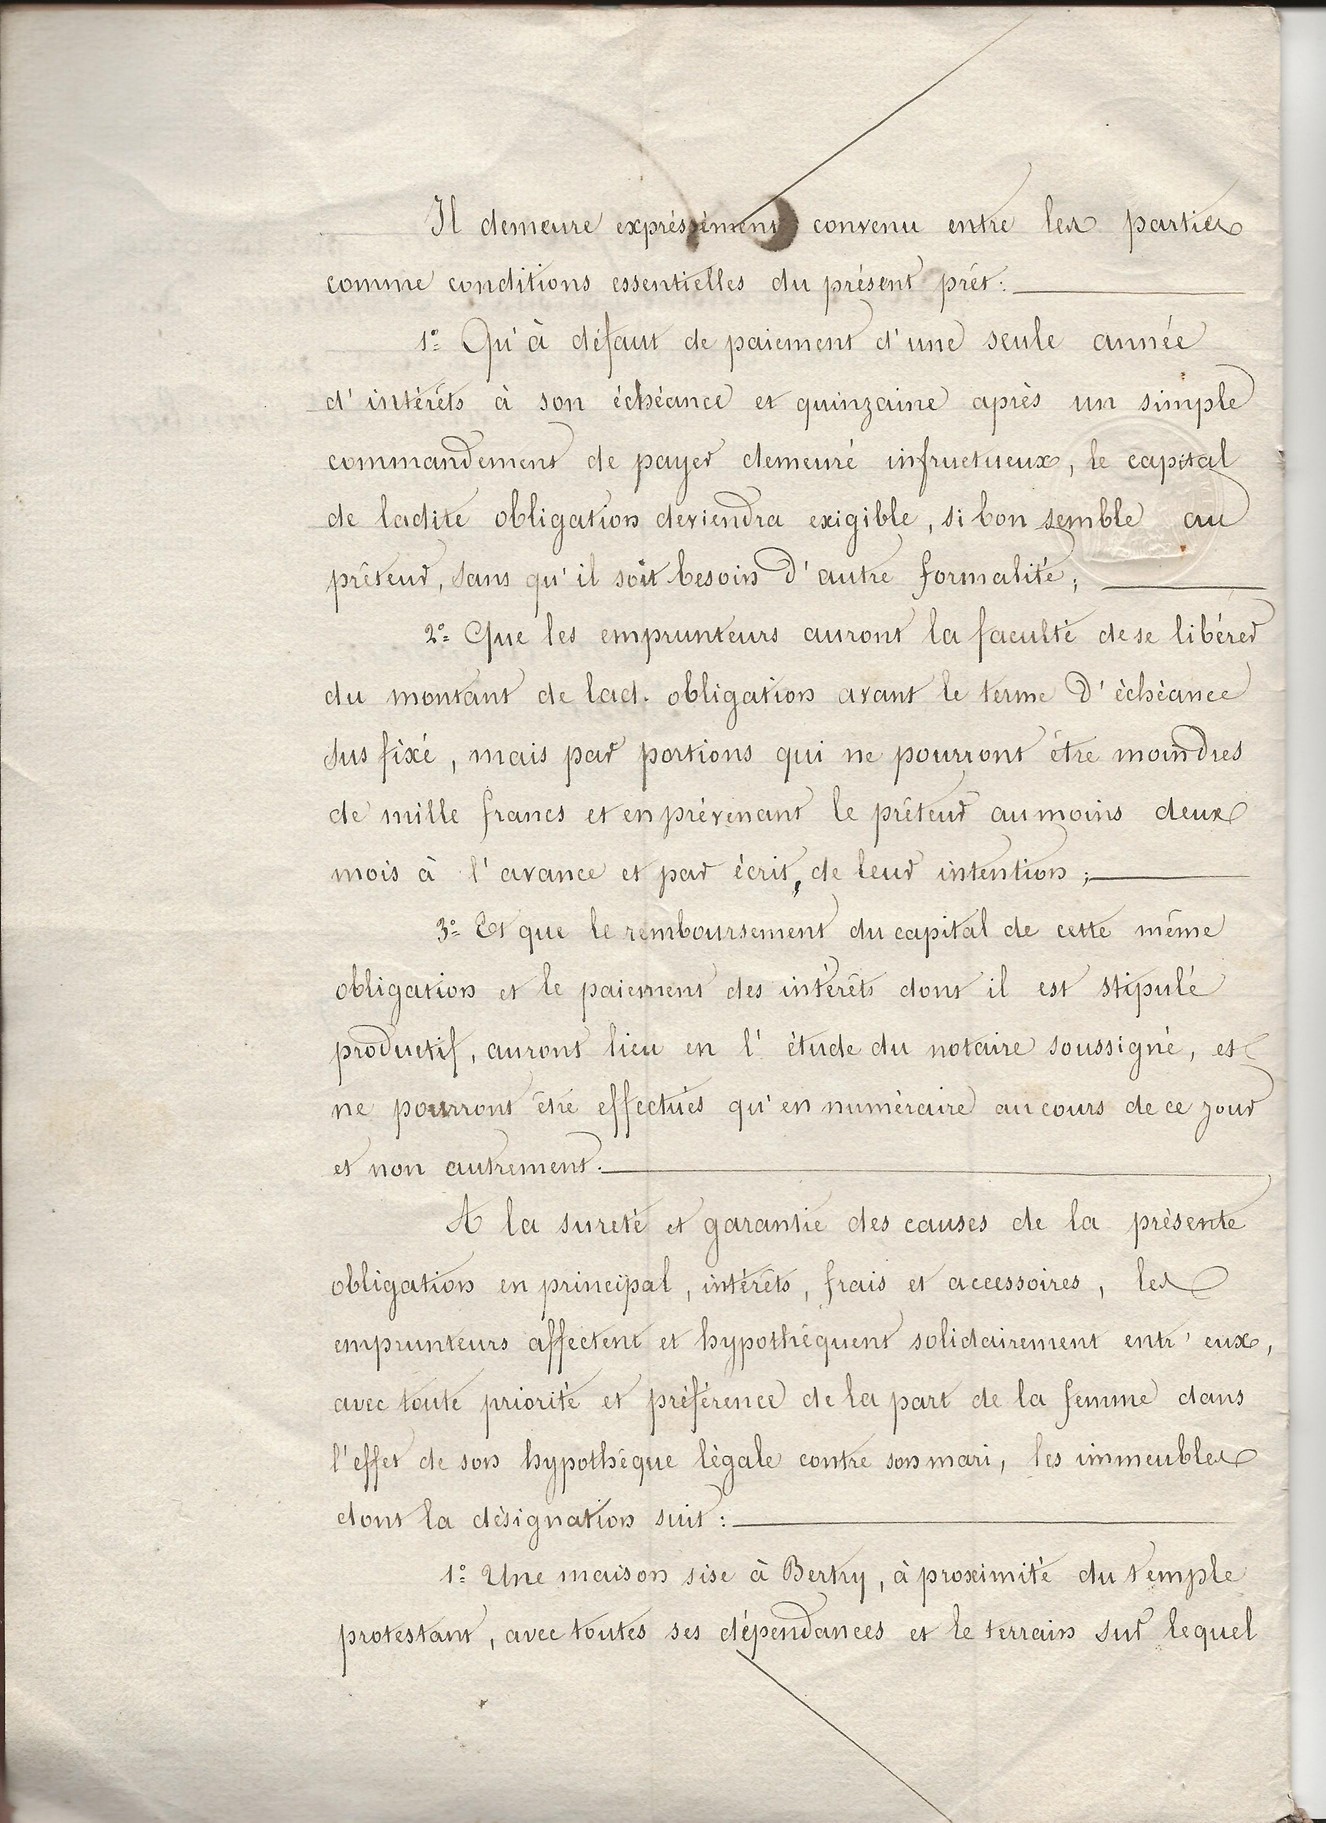 Il demeure expréssément convenu entre les parties
comme conditions essentielles du présent prêt :
1° Qu'à défaut de paiement d'une seule année
d'intérêts à son échéance et quinzaine après un simple
commandement de payer demeuré infructueux, le capital
de ladite obligation deviendra exigible, si bon semble au
prêteur, sans qu'il soit besoin d'autre formalité ;
2° Que les emprunteurs auront la faculté de se libérer
du montant de lad. obligation avant le terme d'échéance
sus fixé, mais par portions qui ne pourront être moindres
de mille francs et en prévenant le prêteur au moins deux
mois à l'avance et par écrit, de leur intention ;
3° Et que le remboursement du capital de cette même
obligation et le paiement des intérêts dont il est stipulé
productif, auront lieu en l'étude du notaire soussigné, et
ne pourront être effectués qu'en numéraire au cours de ce jour
et non autrement.
A la sureté et garantie des causes de la présente
obligation en principal, intérêts, frais et accessoires, les
emprunteurs affectent et hypothèquent solidairement entr'eux,
avec toute priorité et préférence de la part de la femme dans
l'effet de son hypothèque légale contre son mari, les immeubles
dont la désignation suit :
1° Une maison sise à Bertry, à proximité du temple
protestant, avec toutes ses dépendances et le terrain sur lequel